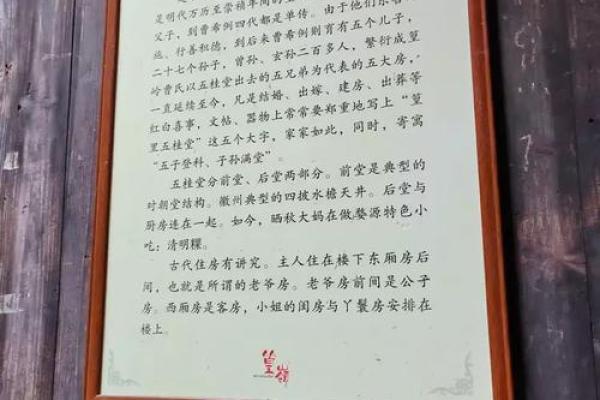 是明代万历至崇祯年间的
父子，到曹希例四代都是单传。由于他们乐善
施、行善积德，到后来曹希例则育有五个儿子，
二十七个孙子，曾孙、玄孙二百多人，繁衍成篁
岭曹氏以五桂堂出去的五兄弟为代表的五大房，
一直延续至今，凡是结婚、出嫁、建房、出葬等
红白喜事，文帖、器物上常常要郑重地写上“篁
里五桂堂”这五个大字，家家如此，同时，寄寓
“五子登科、子孙满堂”。
五桂堂分前堂、后堂两部分。前堂是典型的
对朝堂结构。徽州典型的四披水檐天井。后堂与
厨房连在一起。如今，晒秋大妈在做婺源特色小
吃：清明粿。
古代住房有讲究。主人住在楼下东厢房后
间，也就是所谓的老爷房。老爷房前间是公子
房。西厢房是客房，小姐的闺房与丫鬟房安排在
楼上。
篁岭